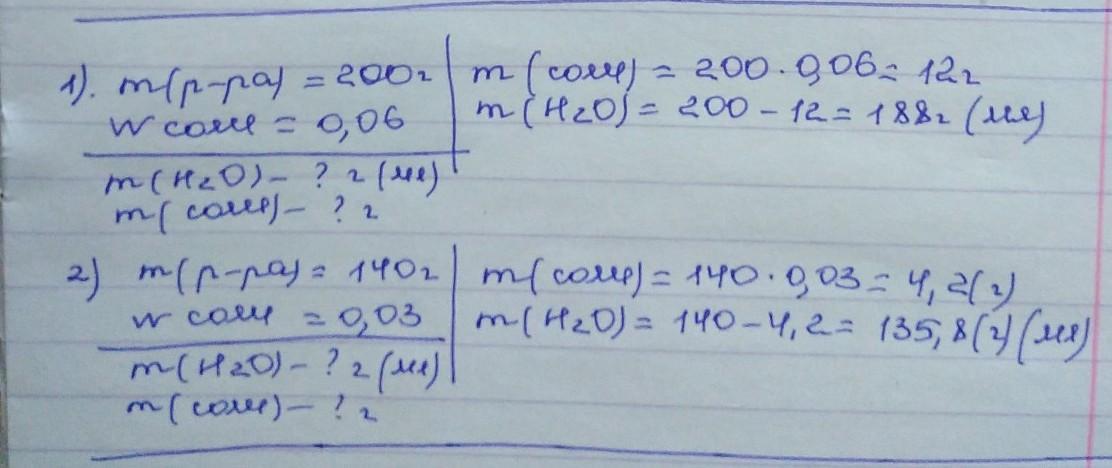 1). m(р-ра) = 200г
w соли = 0,06
m(H2O) - ? г (мл)
m(соли) - ? г
m(соли) = 200·0,06 = 12г
m(H2O) = 200 - 12 = 188г (мл)
2) m(р-ра) = 140г
w соли = 0,03
m(H2O) - ? г (мл)
m(соли) - ? г
m(соли) = 140·0,03 = 4,2(г)
m(H2O) = 140 - 4,2 = 135,8(г)(мл)